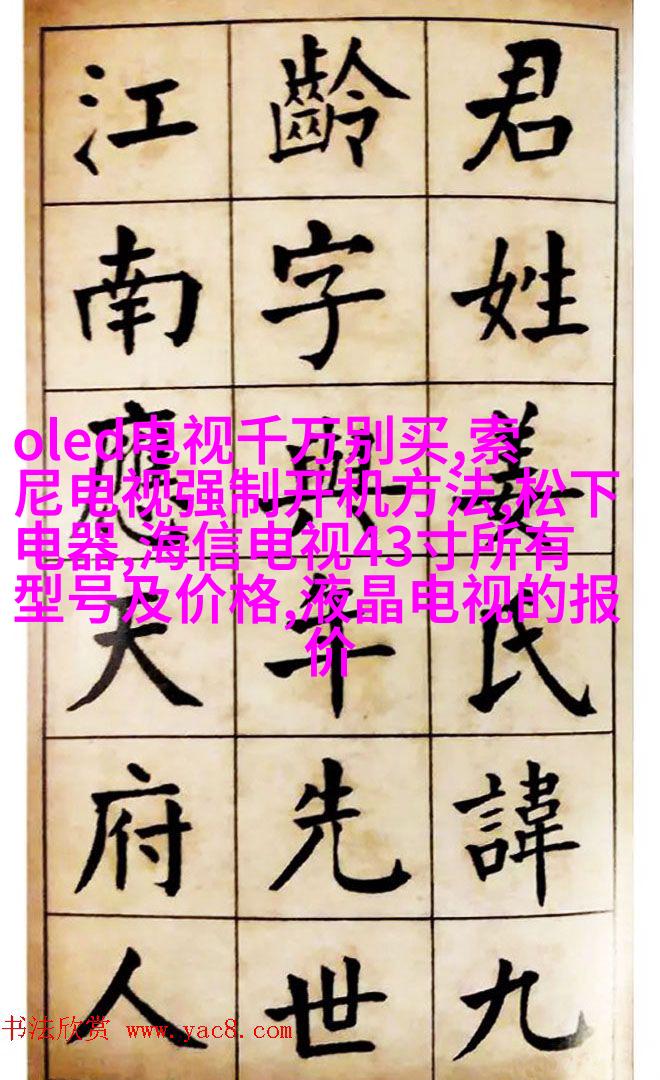 君姓姜氏諱九
齡字與年先世
江南應天府人
oled电视千万别买,索
尼电视强制开机方法,松下
电器,海信电视43寸所有
型号及价格,液晶电视的报
价
书法欣赏 www.yac8.com